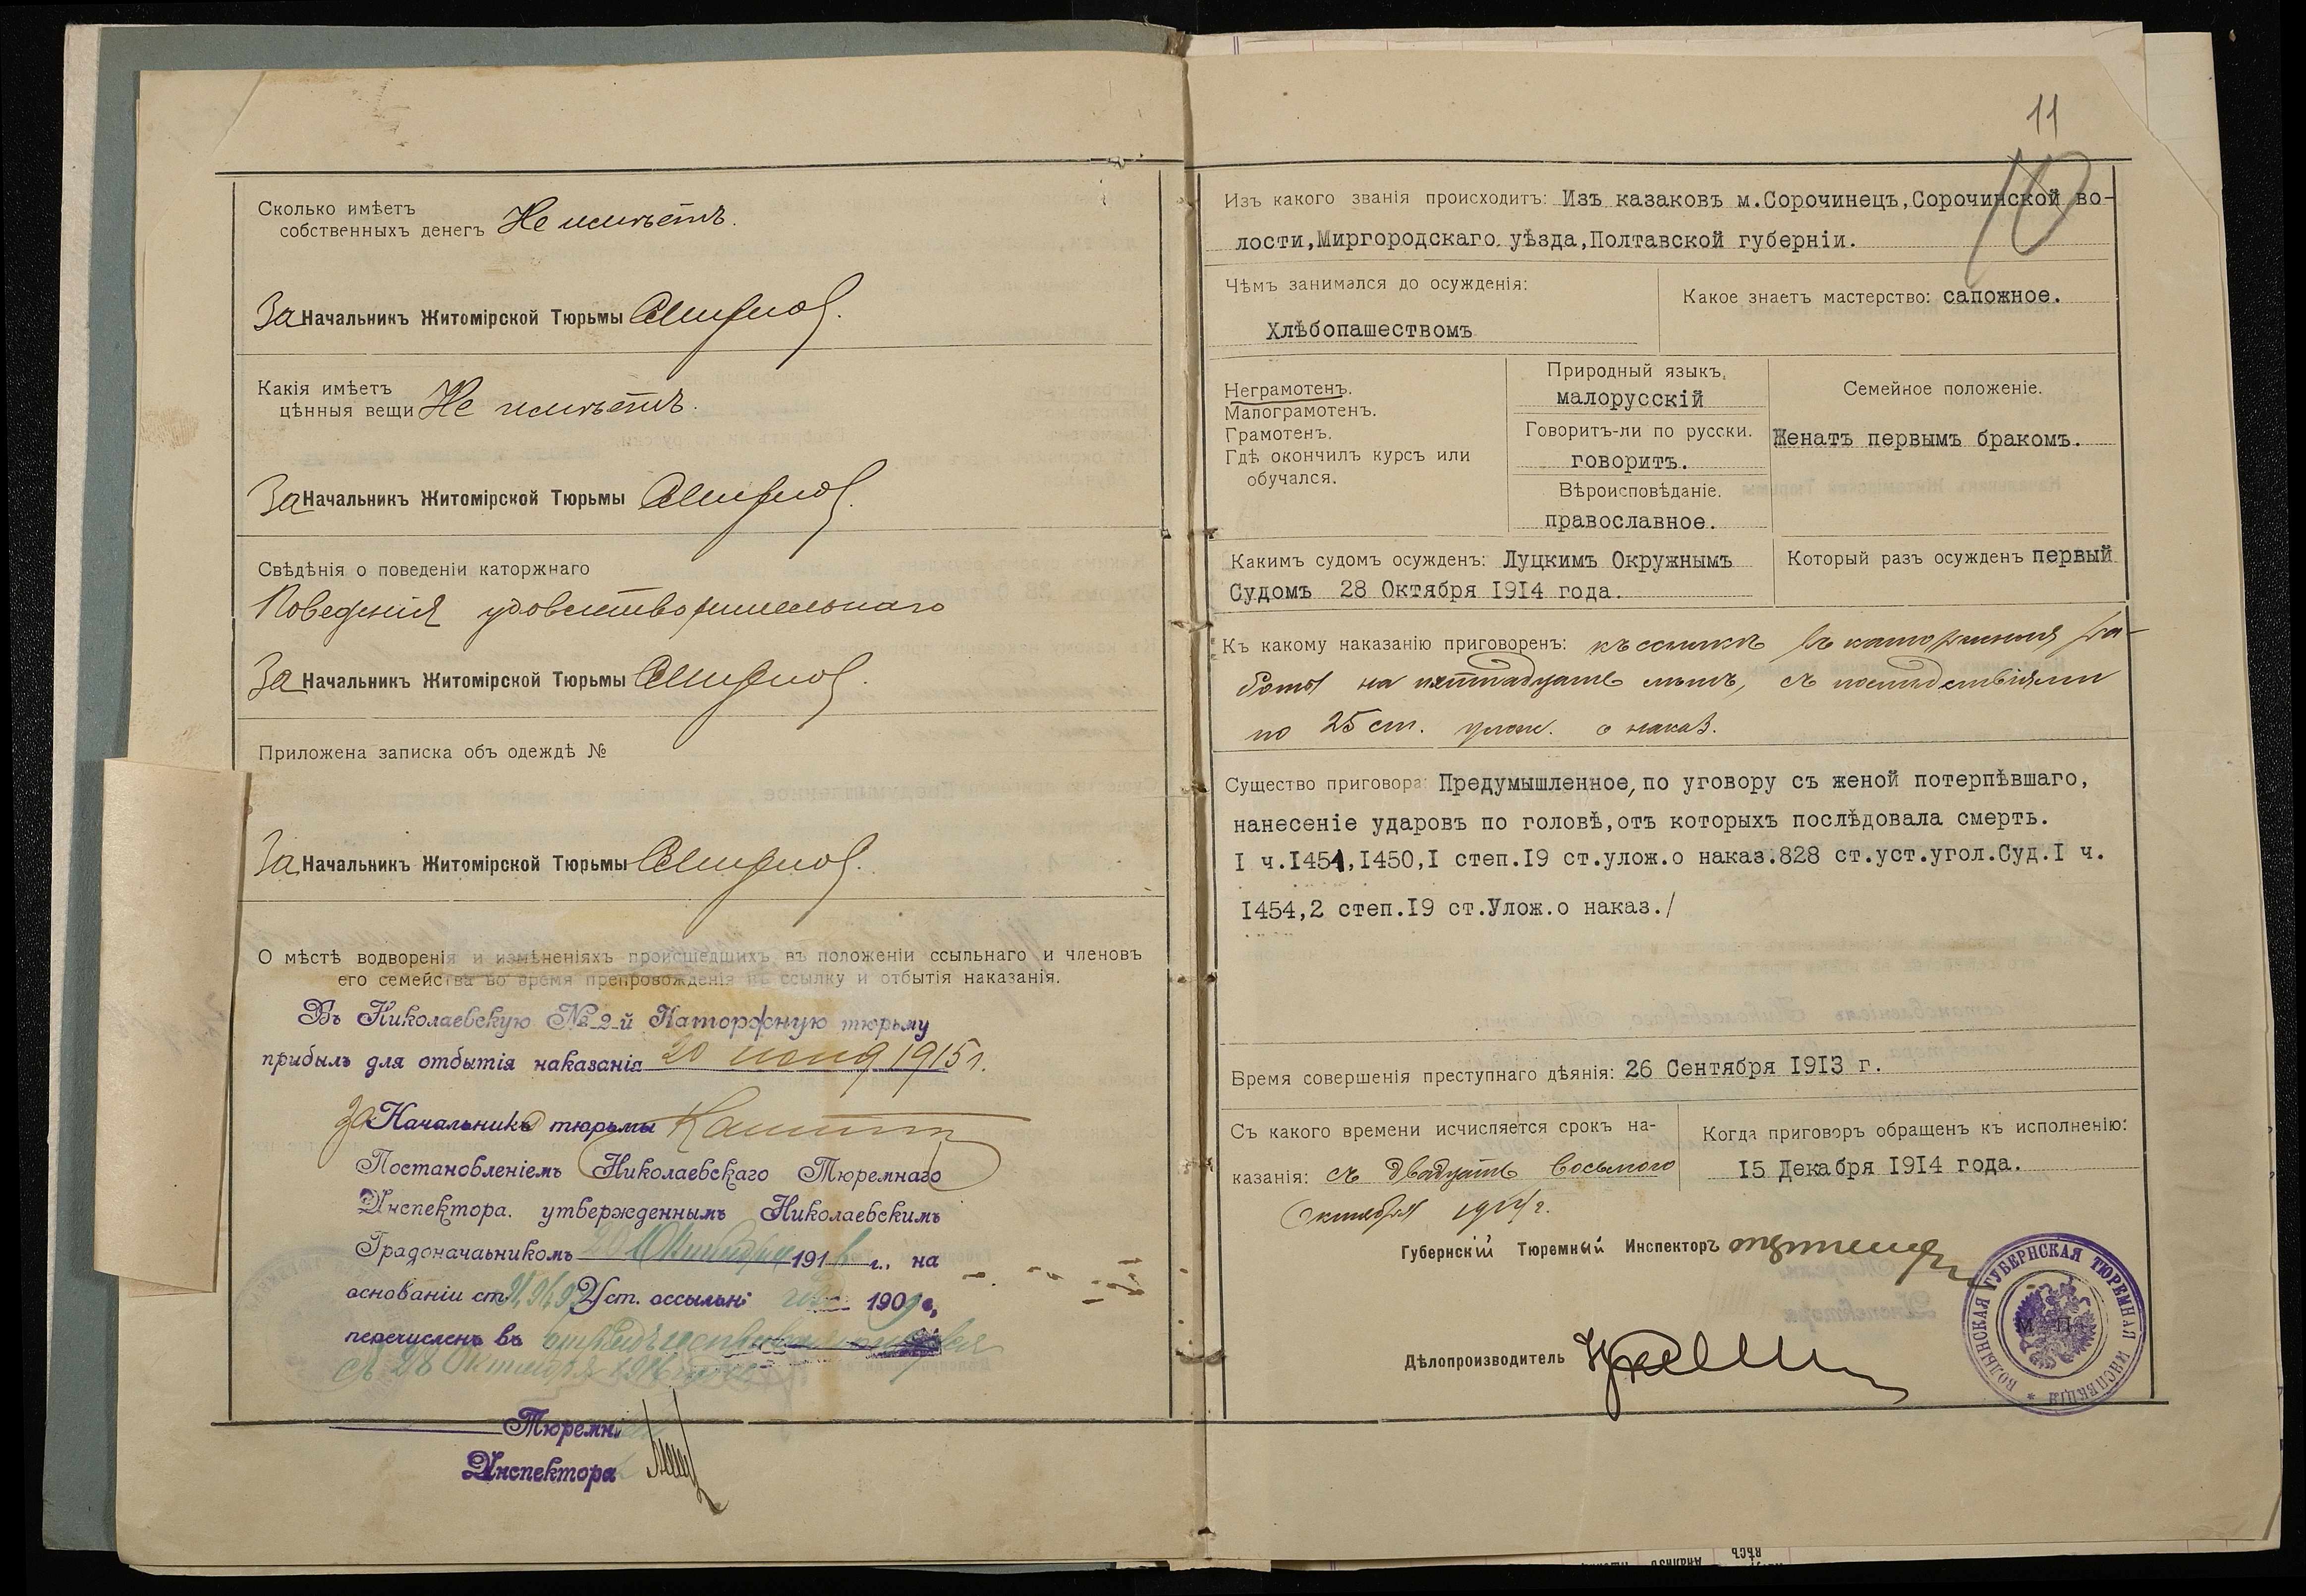 Сколько имѣетъ
собственныхъ денегъ Не имѣетъ.
За Начальникъ Житомірской Тюрьмы
Какія имѣетъ
цѣнныя вещи Не имѣетъ.
За Начальникъ Житомірской Тюрьмы
Свѣдѣнія о поведеніи каторжнаго
Поведенія удовлетворительнаго
За Начальникъ Житомірской Тюрьмы
Приложена записка объ одеждѣ №
За Начальникъ Житомірской Тюрьмы
О мѣстѣ водворенія и измѣненіяхъ происшедшихъ въ положеніи ссыльнаго и членовъ
его семейства во время препровожденія въ ссылку и отбытія наказанія.
Въ Николаевскую № 2-й Каторжную тюрьму
прибылъ для отбытія наказанія 20 1915 г.
За Начальника тюрьмы
Постановленіемъ Николаевскаго Тюремнаго
Инспектора, утвержденнымъ Николаевскимъ
Градоначальникомъ Октября 191 г., на
основаніи ст. Уст. оссыльн 1909 г,
перечисленъ въ
съ 28 Октября 1916 года
Тюремн
Инспектора
11
10
Изъ какого званія происходитъ: Изъ казаковъ м.Сорочинецъ,Сорочинской во-
лости,Миргородскаго уѣзда,Полтавской губерніи.
Чѣмъ занимался до осужденія:
Хлѣбопашествомъ
Какое знаетъ мастерство: сапожное.
Неграмотенъ.
Малограмотенъ.
Грамотенъ.
Гдѣ окончилъ курсъ или
обучался.
Природный языкъ.
малорусскій
Говоритъ-ли по русски.
говоритъ.
Вѣроисповѣданіе.
православное.
Семейное положеніе.
Женатъ первымъ бракомъ.
Какимъ судомъ осужденъ: Луцкимъ Окружнымъ
Судомъ 28 Октября 1914 года.
Который разъ осужденъ первый
Къ какому наказанію приговоренъ: къ ссылкѣ въ каторжныя ра-
боты на пятнадцать лѣтъ, съ послѣдствіями
по 25 ст. улож. о наказ.
Существо приговора: Предумышленное, по уговору съ женой потерпѣвшаго,
нанесеніе ударовъ по головѣ,отъ которыхъ послѣдовала смерть.
I ч.I454,I450,I степ.I9 ст.улож.о наказ.828 ст.уст.угол.Суд.I ч.
I454,2 степ.I9 ст.Улож.о наказ./
Время совершенія преступнаго дѣянія: 26 Сентября I9I3 г.
Съ какого времени исчисляется срокъ на-
казанія: съ двадцать восьмого
Октября 1914 г.
Когда приговоръ обращенъ къ исполненію:
I5 Декабря I9I4 года.
Губернскій Тюремный Инспекторъ
Дѣлопроизводитель
ВОЛЫНСКАЯ ГУБЕРНСКАЯ ТЮРЕМНАЯ ИНСПЕКЦІЯ *
М. П.